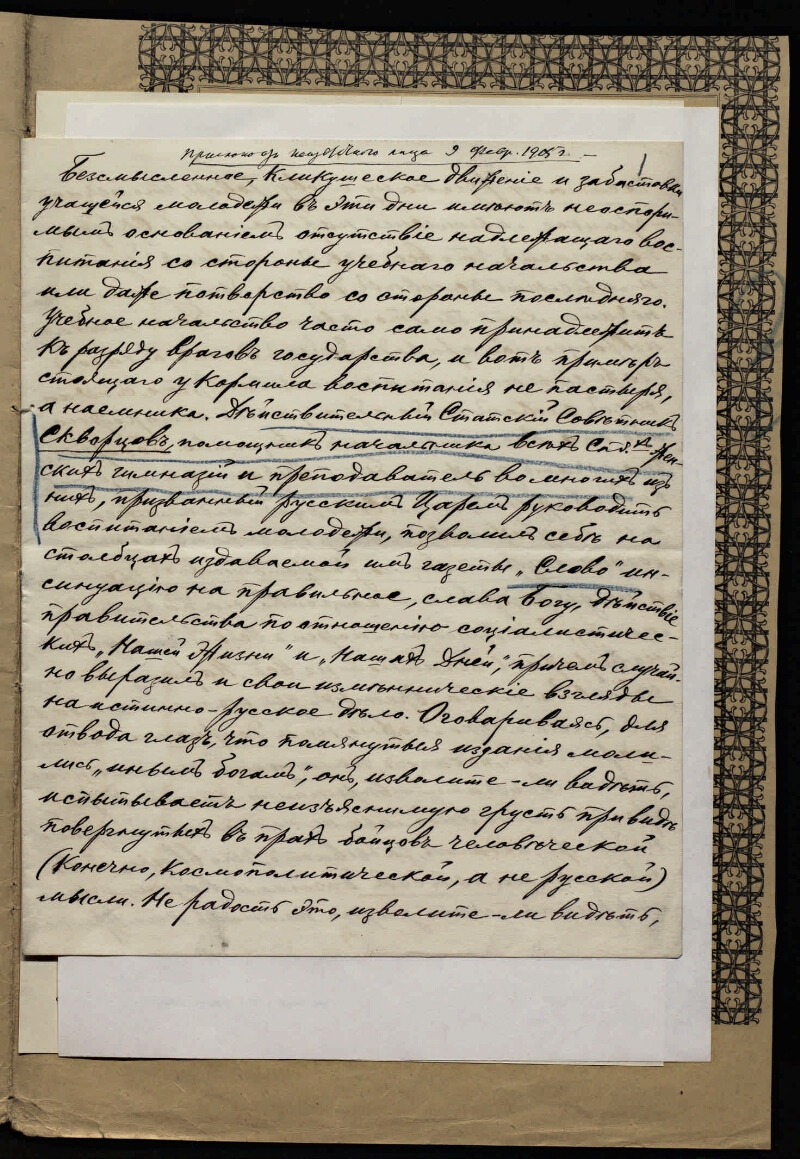 Прислано отъ неизвѣстнаго лица 9 февр. 1905 г.
Безсмысленное, кликушеское движеніе и забастовки
учащейся молодежи въ эти дни имѣютъ неоспори-
мымъ основаніемъ отсутствіе надлежащаго вос-
питанія со стороны учебнаго начальства
или даже потворство со стороны послѣдняго.
Учебное начальство часто само принадлежитъ
къ разряду враговъ государства, и вотъ примѣръ
стоящаго у кормила воспитанія не пастыря,
а наемника. Дѣйствительный Статскій Совѣтникъ
Скворцовъ, помощникъ начальника всѣхъ Спб.хъ Жен-
скихъ гимназій и преподаватель во многихъ изъ
нихъ, призванный русскимъ Царемъ руководить
воспитаніемъ молодежи, позволилъ себѣ на
столбцахъ издаваемой имъ газеты „Слово" ин-
синуацію на правильное, слава Богу, дѣйствіе
правительства по отношенію соціалистичес-
кихъ „Нашей Жизни" и „Нашихъ Дней", причемъ случай-
но выразилъ и свои измѣнническіе взгляды
на истинно-русское дѣло. Оговариваясь, для
отвода глазъ, что помянутыя изданія моли-
лись „инымъ богамъ", онъ, изволите-ли видѣть,
испытываетъ неизъяснимую грусть при видѣ
повергнутыхъ въ прахъ бойцовъ человѣческой
(Конечно, космополитической, а не русской)
мысли. Не радость это, изволите-ли видѣть,